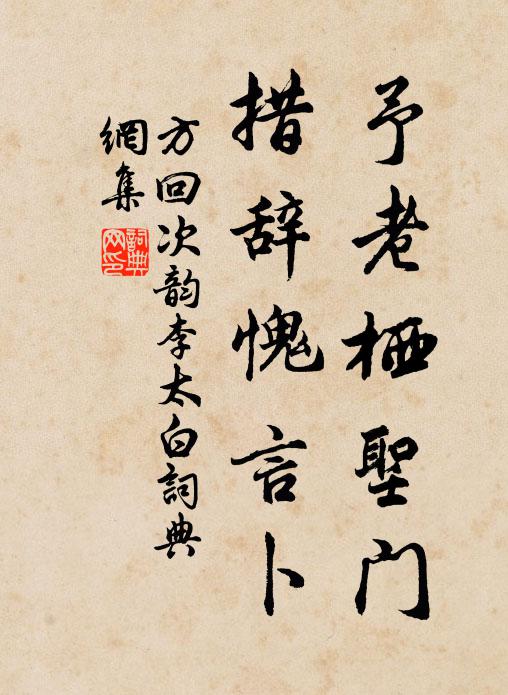 予老栖聖门
措辞愧言卜
方回次韵李太白詞典
網集
詞典网印